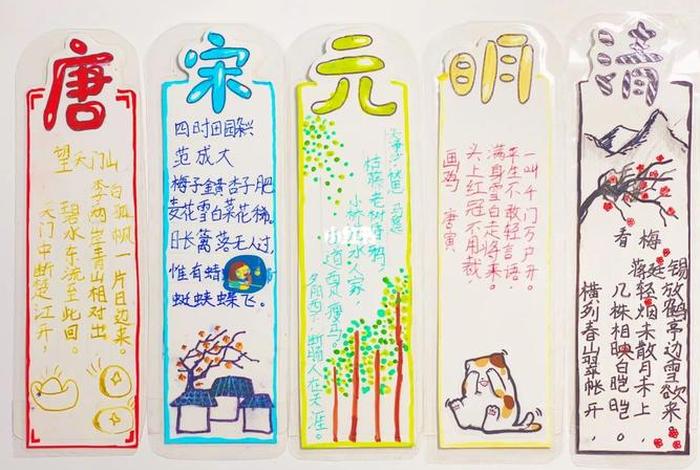 唐
望天门山
李白
天门中断楚江开，
碧水东流至此回。
两岸青山相对出
孤帆一片日边来。
宋
四时田园杂兴
范成大
梅子金黄杏子肥
麦花雪白菜花稀。
日长篱落无人过，
惟有蜻
蜓蛱蝶飞。
元
天净沙·秋思
枯藤老树昏鸦
小桥流水人家，
古道西风瘦马。
夕阳西下，断肠人在天涯。
小红书
明
画鸡 唐寅
头上红冠不用裁，
满身雪白走将来。
平生不敢轻言语，
一叫千门万户开。
清
看梅
蒋廷锡
横列青山翠帐开，
几株相映白皑皑。
轻烟未散月未上，
放鹤亭边雪欲来